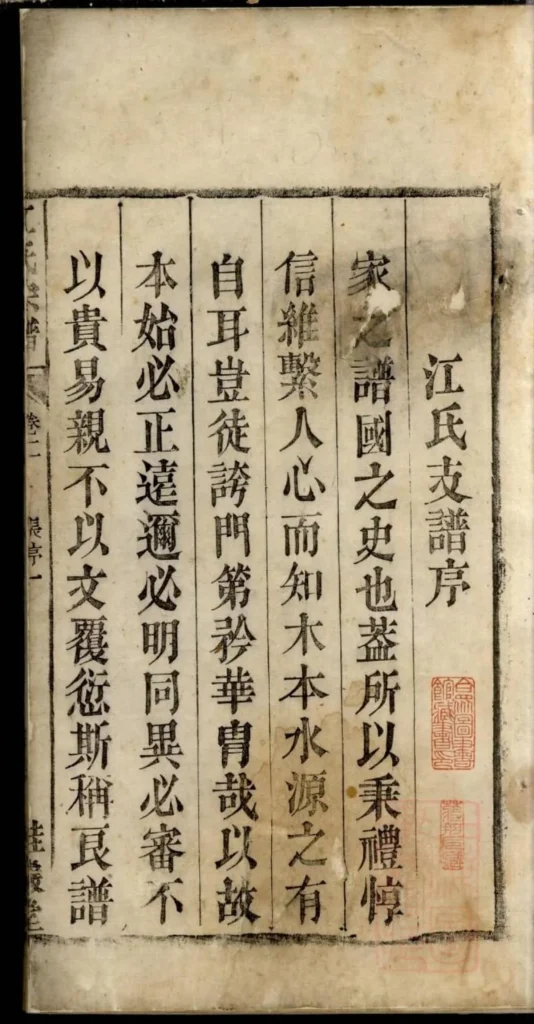 江氏支譜序
家之譜國之史也葢所以秉禮惇
信維繫人心而知木本水源之有
自耳豈徒誇門第矜華胄哉以故
本始必正遠邇必明同異必審不
以貴易親不以文覆愆斯稱良譜
江氏宗譜
卷一
合眾圖書館藏書印